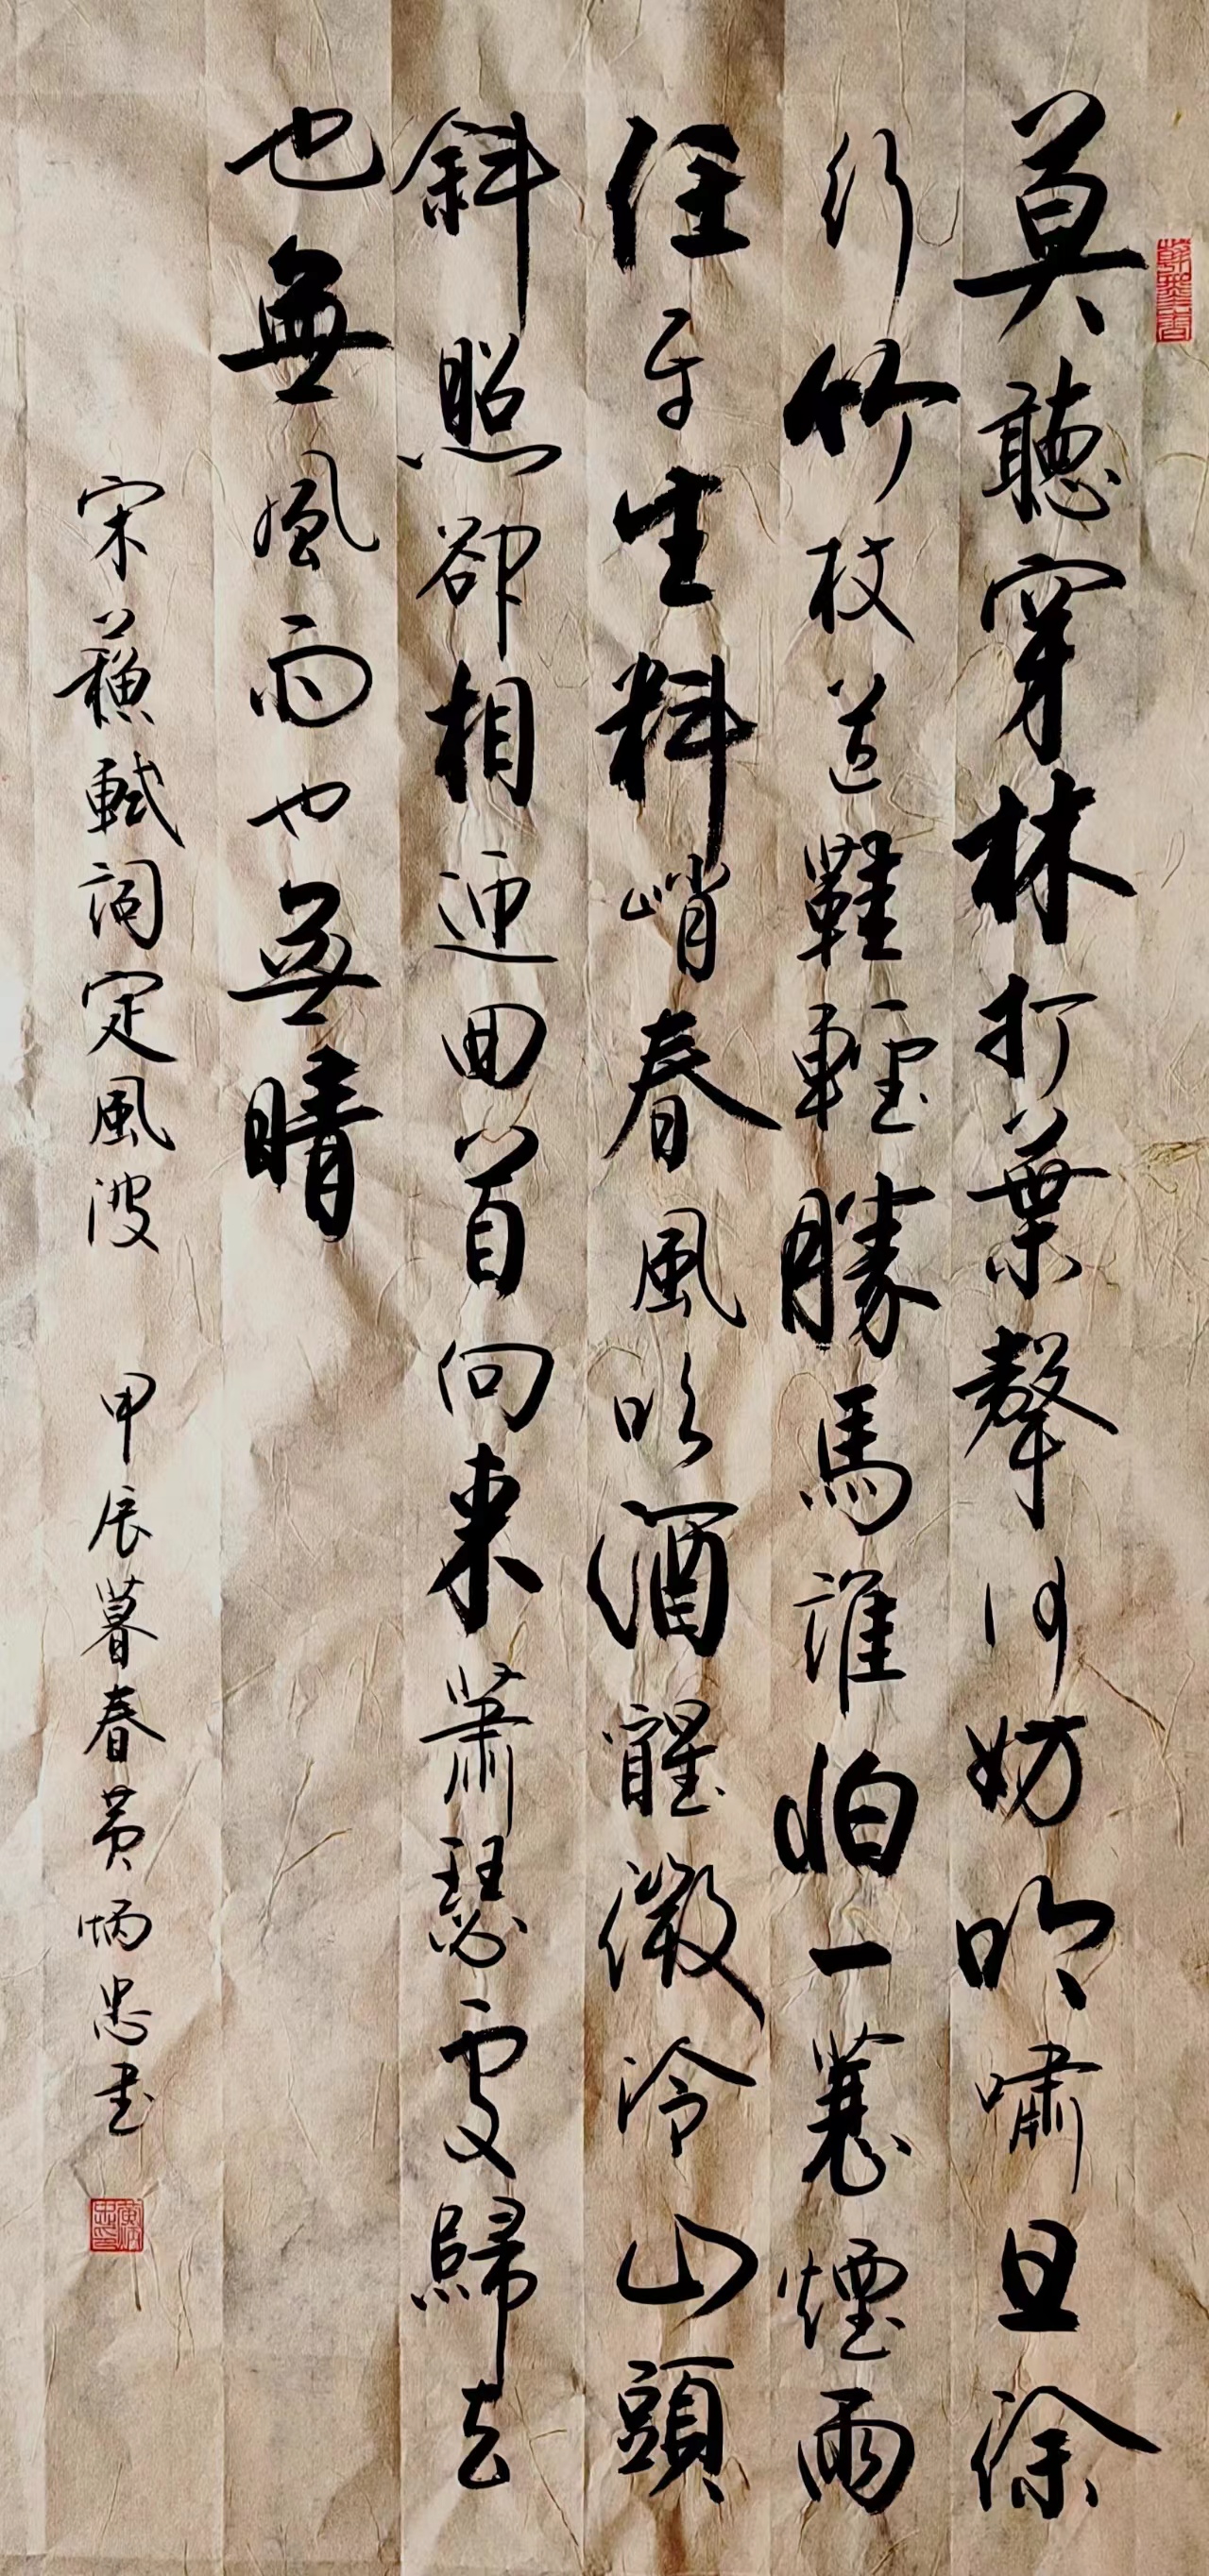 翰墨香
莫聽穿林打葉聲何妨吟嘯且徐
行竹杖芒鞋輕勝馬誰怕一蓑煙雨
任平生料峭春風吹酒醒微冷山頭
斜照卻相迎回首向來蕭瑟處歸去
也無風雨也無晴
宋蘇軾詞定風波 甲辰暮春黄炳忠書
黄炳忠印